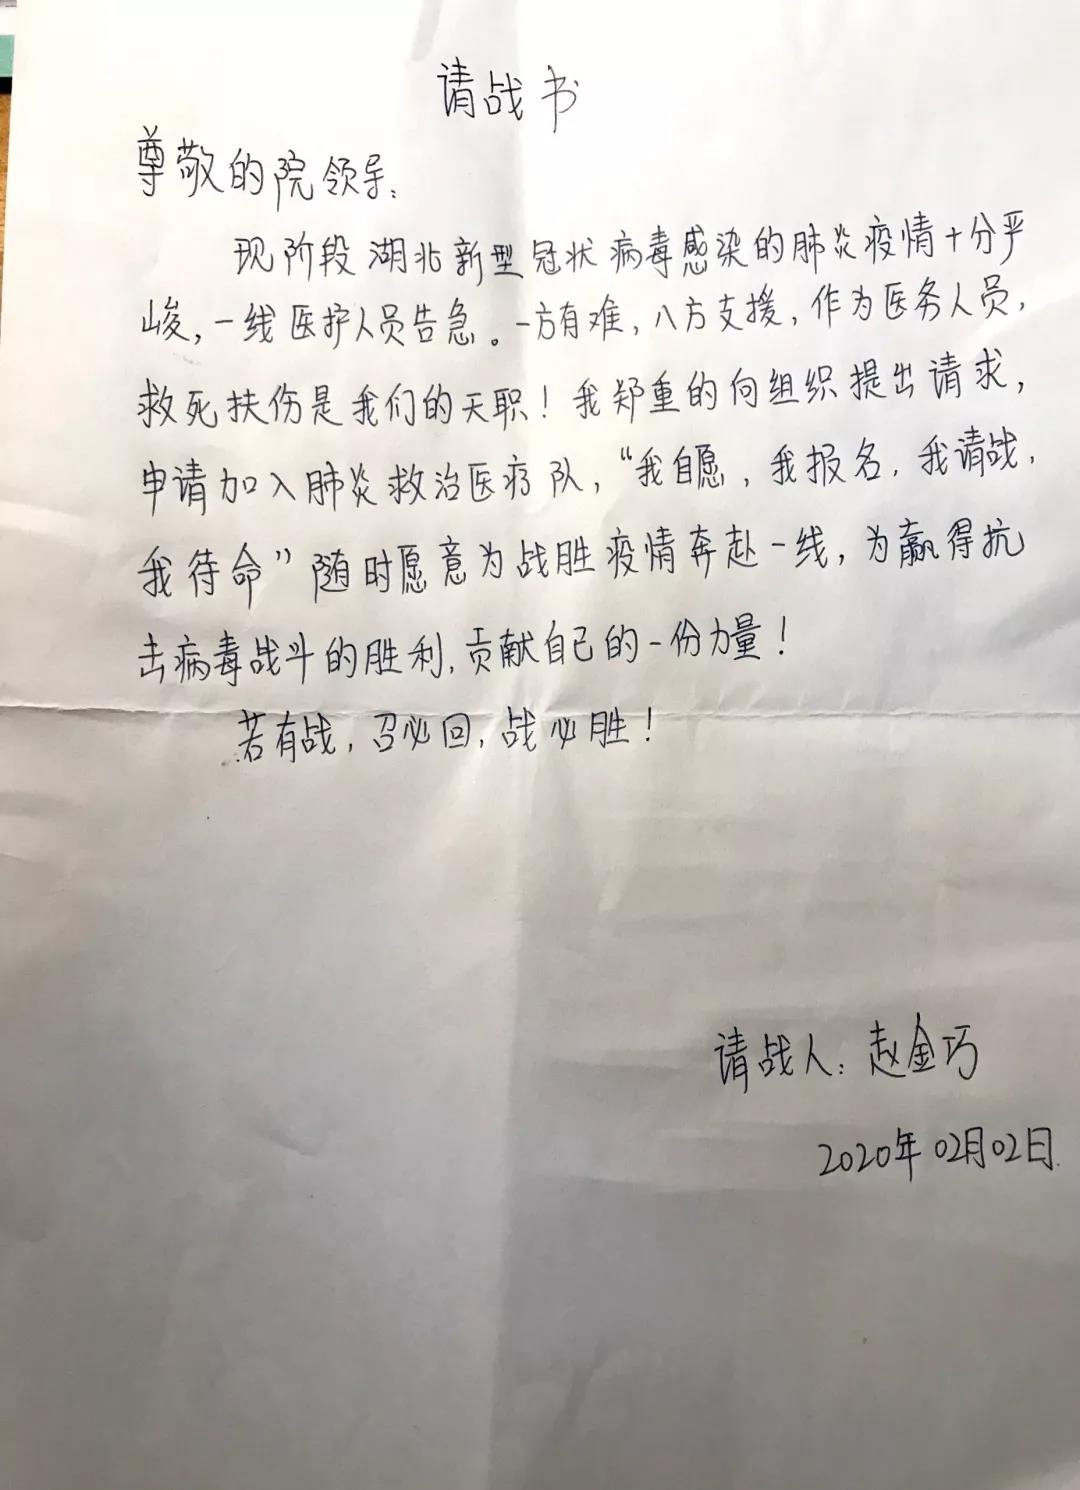 请战书
尊敬的院领导：
现阶段湖北新型冠状病毒感染的肺炎疫情十分严
峻，一线医护人员告急。一方有难，八方支援，作为医务人员，
救死扶伤是我们的天职！我郑重的向组织提出请求，
申请加入肺炎救治医疗队，“我自愿，我报名，我请战，
我待命”随时愿意为战胜疫情奔赴一线，为赢得抗
击病毒战斗的胜利，贡献自己的一份力量！
若有战，召必回，战必胜！
请战人：赵金巧
2020年02月02日.